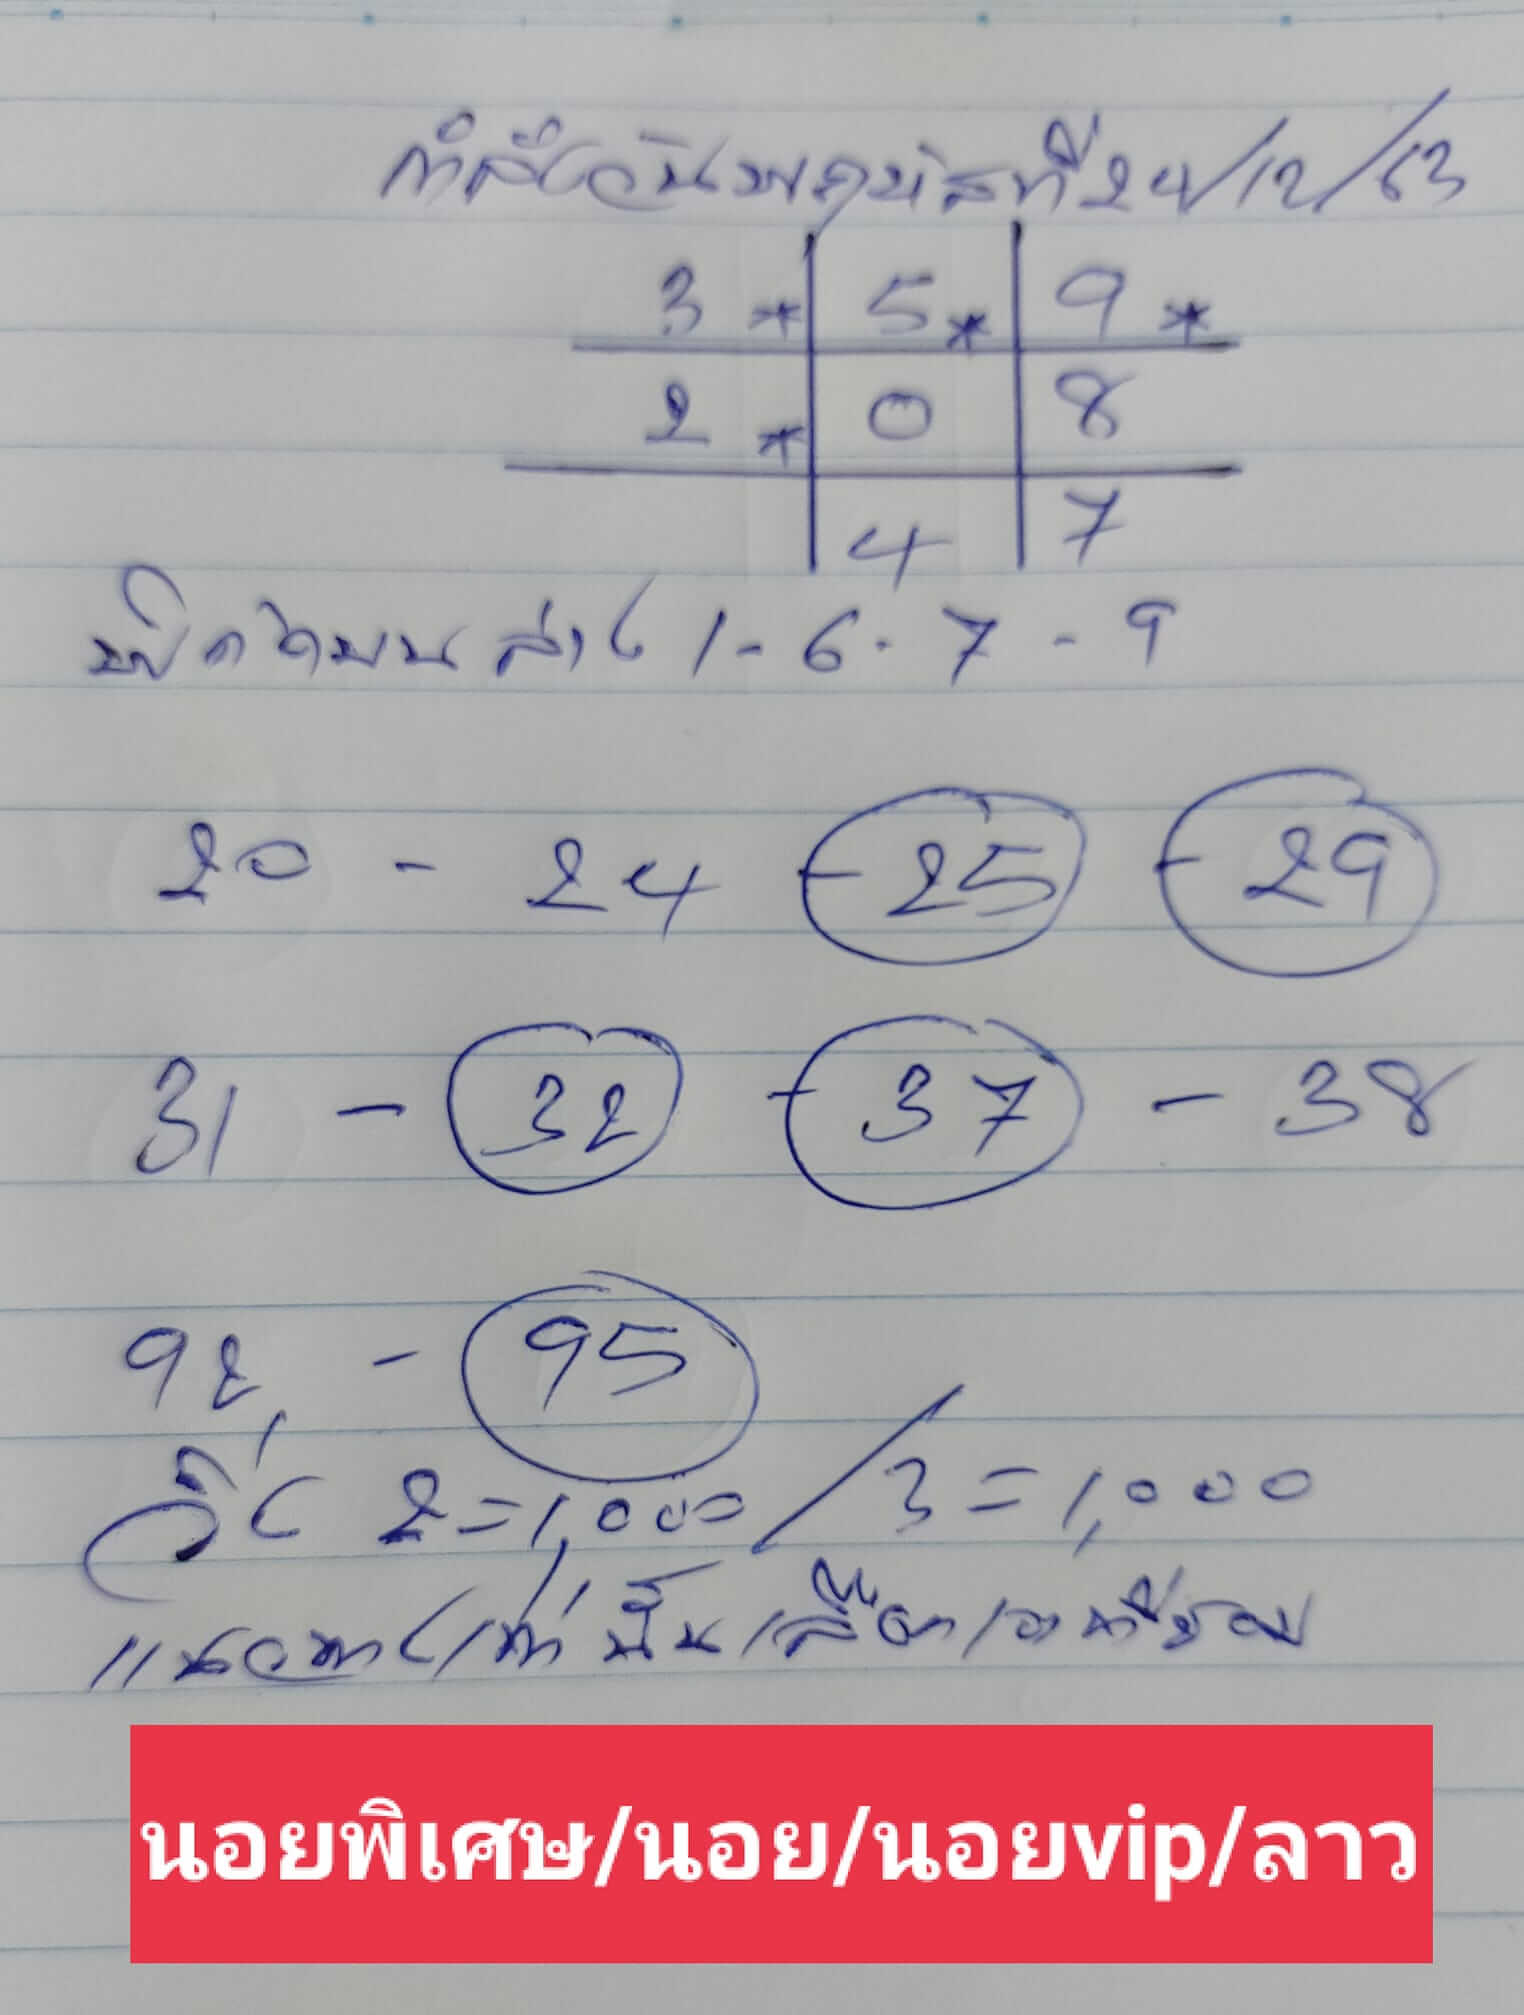 กำลังวันพฤหัสที่ 24/12/63
3 * 5 * 9 *
2 * 0 8
4 7
พิกัดบนล่าง 1-6-7-9
20 - 24 - 25 - 29
31 - 32 - 37 - 38
92 - 95
วิ่ง 2=1,000/3=1,000
แนวทางเท่านั้นเลือกเอาที่ชอบ
นอยพิเศษ/นอย/นอยvip/ลาว